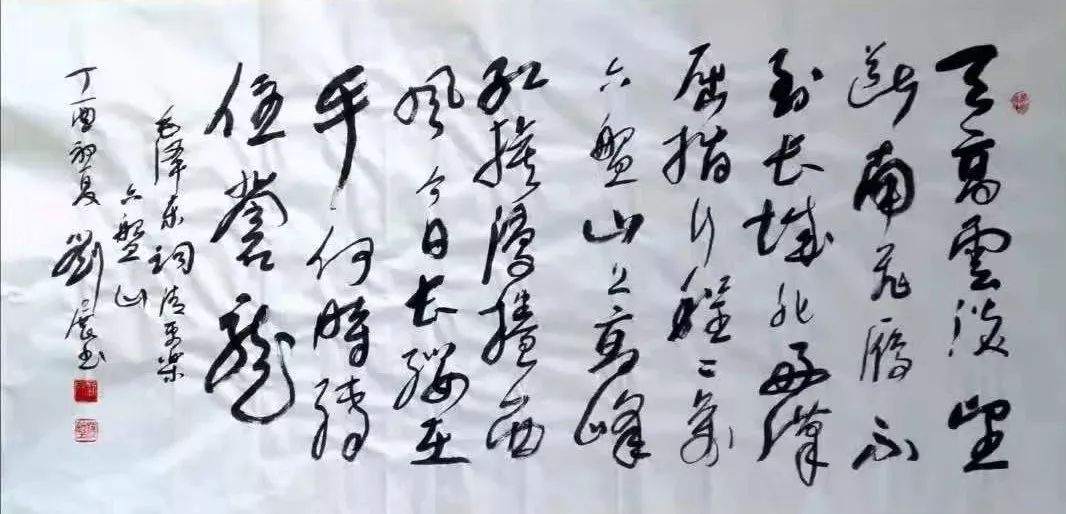 天高雲淡望
断南飞雁不
到长城非好漢
屈指行程二万
六盤山上高峰
红旗漫捲西
风今日长缨在
手何時縛
住蒼龍
毛泽东词清平樂
六盤山
丁酉初夏 劉书